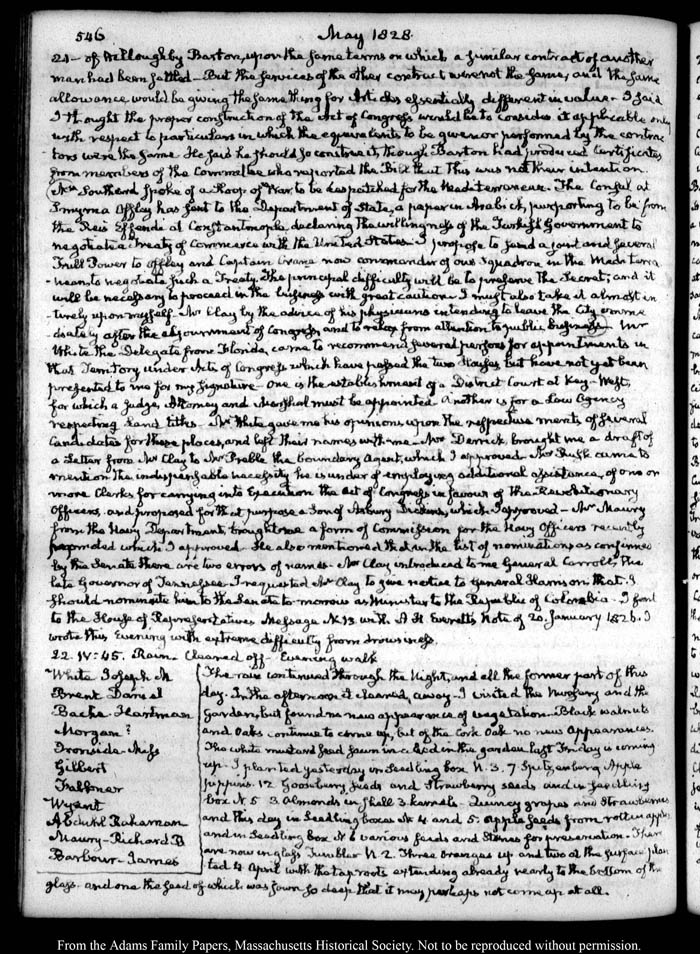 546
May 1828.
21 — of Willoughby Barton, upon the same terms on which a similar contract of another
man had been settled — But the services of the other contract were not the same, and the same
allowance would be giving the same thing for Articles essentially different in value. I said
I thought the proper construction of the Act of Congress would be to consider it applicable only
with respect to particulars in which the equivalents to be given or performed by the contrac-
tors were the same. He said he should so construe it, though Barton had produced Certificates
from members of the Committee who reported the Bill that this was not their intention.
Mr Southard spoke of a Sloop of War to be despatched for the Mediterranean. The Consul at
Smyrna Offley has sent to the Department of State, a paper in Arabick, purporting to be from
the Reis Effendi at Constantinople declaring the willingness of the Turkish Government to
negotiate a Treaty of Commerce with the United States. I propose to send a joint and several
Full Power to Offley and Captain Crane now commander of our Squadron in the Mediterra-
nean to negotiate such a Treaty. The principal difficulty will be to preserve the Secret; and it
will be necessary to proceed in the business with great caution. I must also take it almost en-
tirely upon myself — Mr Clay by the advice of his physicians intending to leave the City imme-
diately after the adjournment of Congress, and to relax from attention to public business — Mr
White the Delegate from Florida, came to recommend several persons for appointments in
that Territory under Acts of Congress which have passed the two Houses, but have not yet been
presented to me for my signature — One is the establishment of a District Court at Key-West,
for which a Judge, Attorney and Marshal must be appointed. Another is for a Law Agency
respecting Land titles. Mr White gave me his opinions upon the respective merits of several
Candidates for those places, and left their names with me — Mr Derrick brought me a draft of
a Letter from Mr Clay to Mr Preble the boundary Agent, which I approved. Mr Rush came to
mention the indispensable necessity he is under of employing additional assistance, of one or
more Clerks for carrying into Execution the Act of Congress in favour of the Revolutionary
Officers, and proposed for that purpose a Son of Asbury Dickins, which I approved — Mr Maury
from the Navy Department, brought me a form of Commission for the Navy Officers recently
which I approved. He also mentioned that in the list of nominations as confirmed
by the Senate there are two errors of names. Mr Clay introduced to me General Carroll, the
late Governor of Tennessee. I requested Mr Clay to give notice to General Harrison that I
should nominate him to the Senate to-morrow as Minister to the Republic of Colombia. I sent
to the House of Representatives Message N. 13 with A. H. Everett's Note of 20. January 1826. I
wrote this Evening with extreme difficulty from drowsiness.
22. IV: 45. Rain. Cleared off. Evening walk
White Joseph M
Brent Daniel
Bache. Hartman
Morgan?
Ironside. Miss
Gilbert
Falkner
Wyent
Abdukl Rahaman
Maury-Richard B
Barbour-James
The rain continued through the Night, and all the former part of this
day. In the afternoon it cleared away. I visited the Nursery and the
Garden, but found no new appearance of vegetation. Black walnuts
and Oaks continue to come up, but of the Cork Oak no new appearances.
The white mustard seed sown in a bed in the garden last Friday is coming
up. I planted yesterday in Seedling box N. 3. 7 Spitzenberg Apple
pippins. 12 Goosberry seeds and Strawberry seeds and in seedling
box N. 5 3 Almonds in shell 3 kernels. Quincy grapes and Strawberries
and this day in Seedling boxes N. 4 and 5: apple seeds from rotten apples
and in Seedling box N. 6 various seeds and Stones for preservation. There
are now in glass Tumbler N. 2 Three oranges up and two at the surface, plan-
ted 4 April with the tap roots extending already nearly to the bottom of the
glass. and one the seed of which was sown so deep that it may perhaps not come up at all.
From the Adams Family Papers, Massachusetts Historical Society. Not to be reproduced without permission.